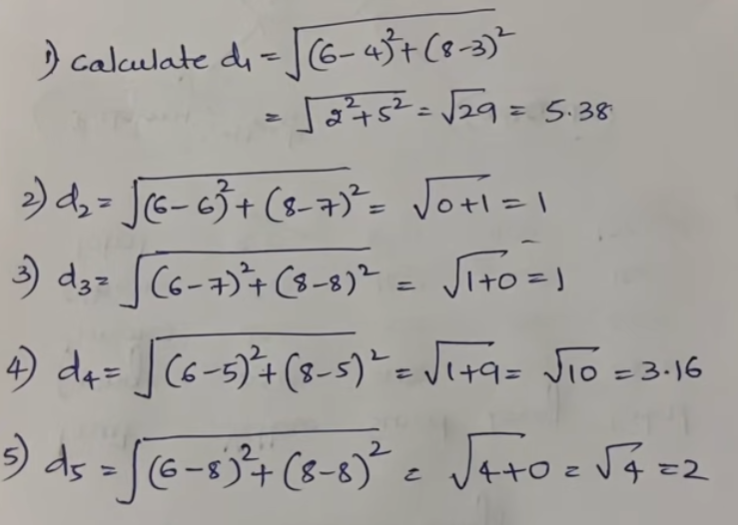 1) calculate d₁ = √(6-4)²+(8-3)²
= √2²+5² = √29 = 5.38
2) d₂ = √(6-6)²+(8-7)² = √0+1 = 1
3) d₃ = √(6-7)²+(8-8)² = √1+0 = 1
4) d₄ = √(6-5)²+(8-5)² = √1+9 = √10 = 3.16
5) d₅ = √(6-8)²+(8-8)² = √4+0 = √4 = 2